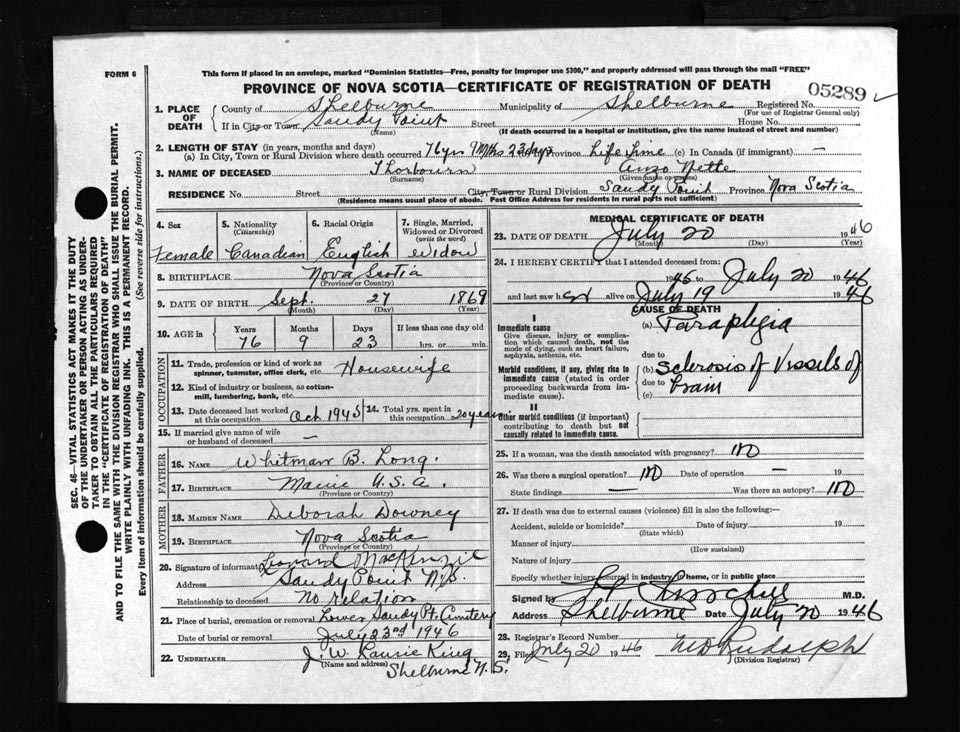 FORM 6
This form if placed in an envelope, marked "Dominion Statistics—Free, penalty for improper use $300," and properly addressed will pass through the mail "FREE"
PROVINCE OF NOVA SCOTIA—CERTIFICATE OF REGISTRATION OF DEATH
05289
SEC. 46—VITAL STATISTICS ACT MAKES IT THE DUTY
OF THE UNDERTAKER OR PERSON ACTING AS UNDER-
TAKER TO OBTAIN ALL THE PARTICULARS REQUIRED
IN THE "CERTIFICATE OF REGISTRATION OF DEATH"
AND TO FILE THE SAME WITH THE DIVISION REGISTRAR WHO SHALL ISSUE THE BURIAL PERMIT.
WRITE PLAINLY WITH UNFADING INK. THIS IS A PERMANENT RECORD.
Every item of information should be carefully supplied. (See reverse side for instructions.)
1. PLACE OF DEATH County of Shelburne Municipality of Shelburne Registered No.
(For use of Registrar General only)
If in City or Town Sandy Point Street House No.
(Name) (If death occurred in a hospital or institution, give the name instead of street and number)
2. LENGTH OF STAY (in years, months and days)
(a) In City, Town or Rural Division where death occurred 76 yrs 9 Mths 23 dys Province Life Time (c) In Canada (if immigrant) —
3. NAME OF DECEASED Thorbourn Anzo Nette
(Surname) (Given name or names)
RESIDENCE No. Street City, Town or Rural Division Sandy Point Province Nova Scotia
(Residence means usual place of abode. Post Office Address for residents in rural parts not sufficient)
4. Sex 5. Nationality (Citizenship) 6. Racial Origin 7. Single, Married, Widowed or Divorced (write the word)
Female Canadian English Widow
8. BIRTHPLACE Nova Scotia
(Province or Country)
9. DATE OF BIRTH Sept. 27 1869
(Month) (Day) (Year)
10. AGE in Years Months Days If less than one day old
76 9 23 hrs. or min.
OCCUPATION
11. Trade, profession or kind of work as spinner, teamster, office clerk, etc. Housewife
12. Kind of industry or business, as cotton-mill, lumbering, bank, etc.
13. Date deceased last worked at this occupation Oct 1945 14. Total yrs. spent in this occupation 20 years
15. If married give name of wife or husband of deceased —
FATHER
16. NAME Whitman B. Long.
17. BIRTHPLACE Maine U.S.A.
(Province or Country)
MOTHER
18. MAIDEN NAME Deborah Downey
19. BIRTHPLACE Nova Scotia
(Province or Country)
20. Signature of informant Leonard MacKenzie
Address Sandy Point N.S.
Relationship to deceased No relation
21. Place of burial, cremation or removal Lower Sandy Pt. Cemetery
Date of burial or removal July 23rd 1946
22. UNDERTAKER J W. Laurie King
(Name and address) Shelburne N.S.
MEDICAL CERTIFICATE OF DEATH
23. DATE OF DEATH July 20 1946
(Month) (Day) (Year)
24. I HEREBY CERTIFY that I attended deceased from:
1945 to July 20 1946
and last saw her alive on July 19 1946
CAUSE OF DEATH
I
Immediate cause (a) Paraplegia
Give disease, injury or complication which caused death, not the mode of dying, such as heart failure, asphyxia, asthenia, etc.
due to
Morbid conditions, if any, giving rise to immediate cause (stated in order proceeding backwards from immediate cause). (b) Sclerosis of Vissels of
due to Brain
(c)
II
Other morbid conditions (if important) contributing to death but not causally related to immediate cause.
25. If a woman, was the death associated with pregnancy? No
26. Was there a surgical operation? No Date of operation — 19
State findings — Was there an autopsy? No
27. If death was due to external causes (violence) fill in also the following:—
Accident, suicide or homicide? Date of injury 19
(State which)
Manner of injury
(How sustained)
Nature of injury
Specify whether injury occurred in industry, in home, or in public place
Signed by M.D.
Address Shelburne Date July 20 1946
28. Registrar's Record Number
29. Filed July 20 1946 Rudolph
(Division Registrar)